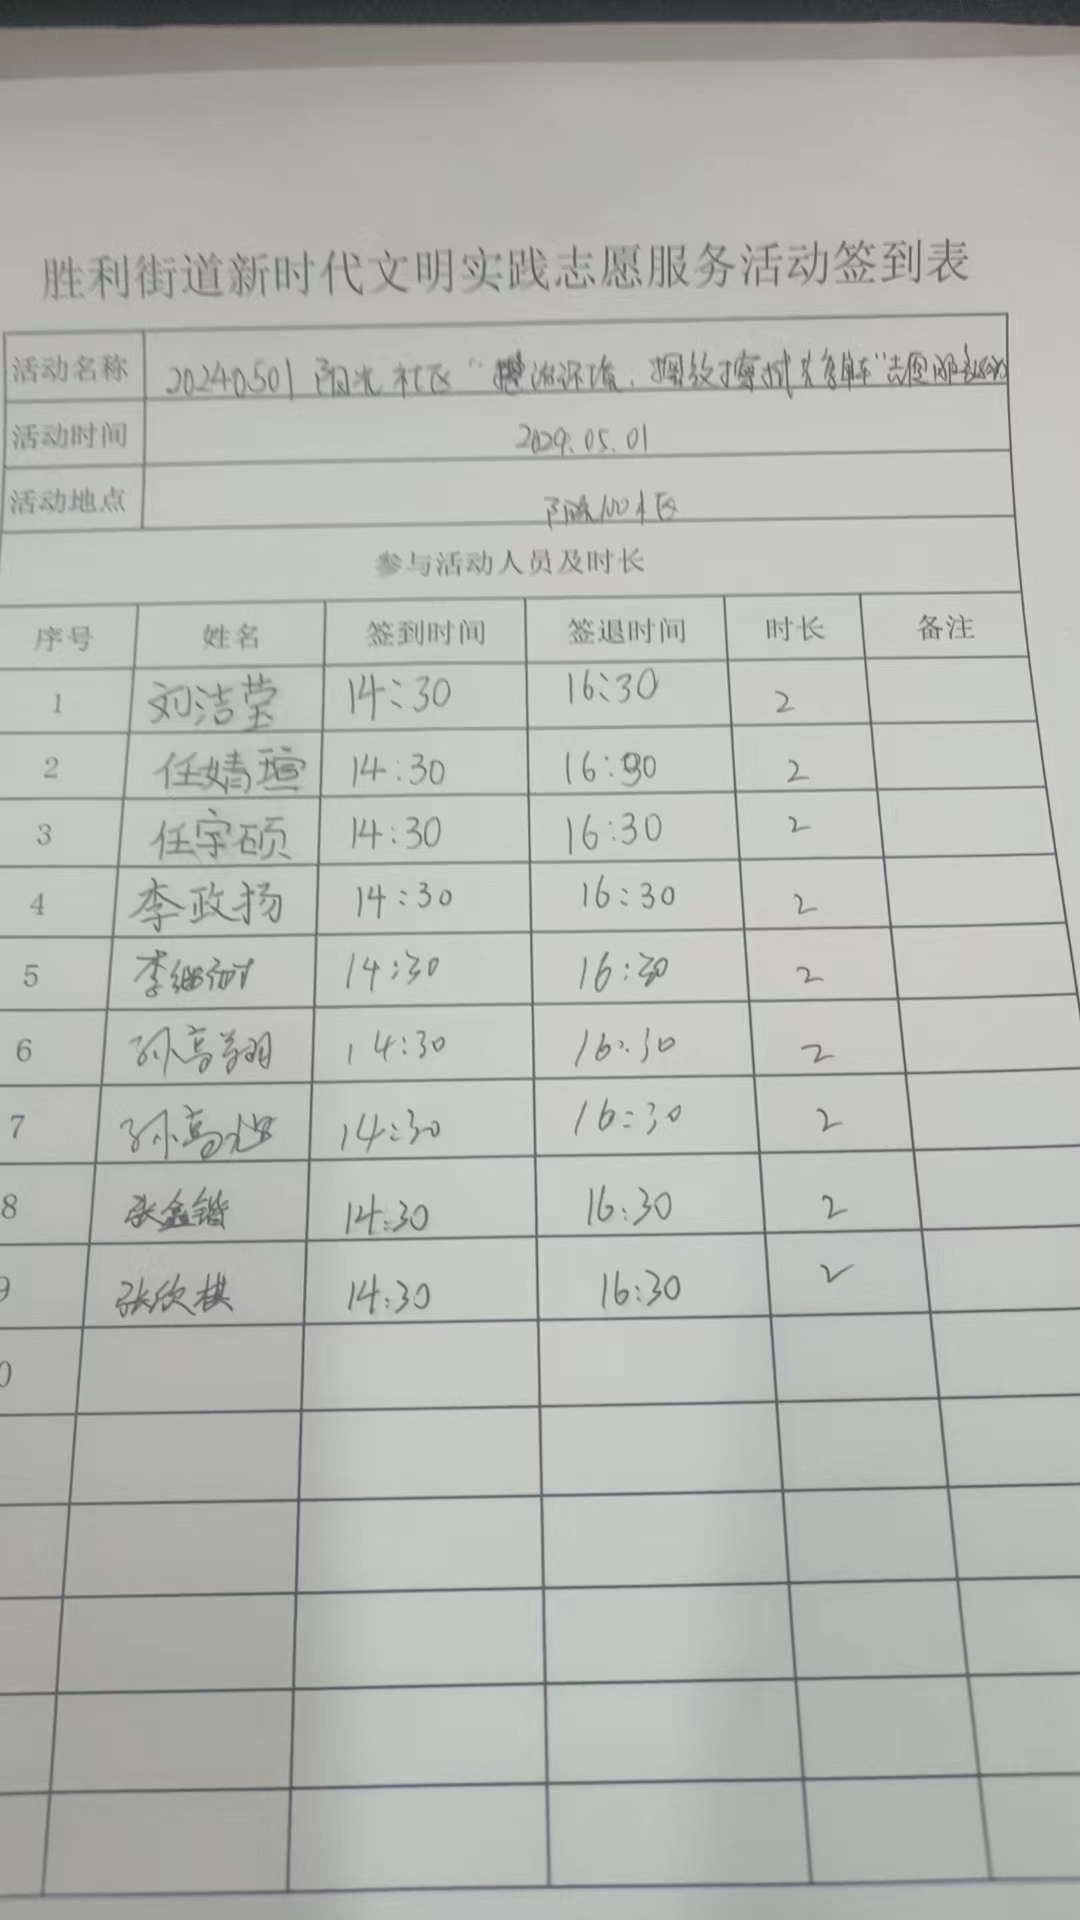 胜利街道新时代文明实践志愿服务活动签到表
活动名称 20240501 阳光社区“ 治环境,摆放擦拭共享单车”志愿服务活动
活动时间 2024.05.01
活动地点 阳光100社区
参与活动人员及时长
序号 姓名 签到时间 签退时间 时长 备注
1 刘洁莹 14:30 16:30 2
2 任婧瑄 14:30 16:30 2
3 任宇硕 14:30 16:30 2
4 李政扬 14:30 16:30 2
5 李 14:30 16:30 2
6 孙高翔 14:30 16:30 2
7 孙高旭 14:30 16:30 2
8 张鑫锴 14:30 16:30 2
9 张欣棋 14:30 16:30 2
0